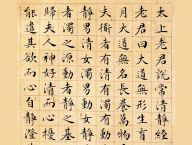 太上老君說常清靜經
老君曰大道無形生育
月大道無名長養萬物
夫道者有清有濁有動
靜男清女濁男動女靜
者濁之源動者靜之基
歸夫人神好清而心
能遣其欲而心自靜澄